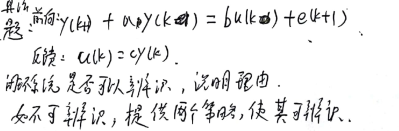 题:前向:y(k+1) + a₀y(k) = bu(k) + e(k+1)
反馈: u(k) = cy(k).
闭环系统是否可以辨识,说明理由.
如不可辨识,提供两个策略,使其可辨识.